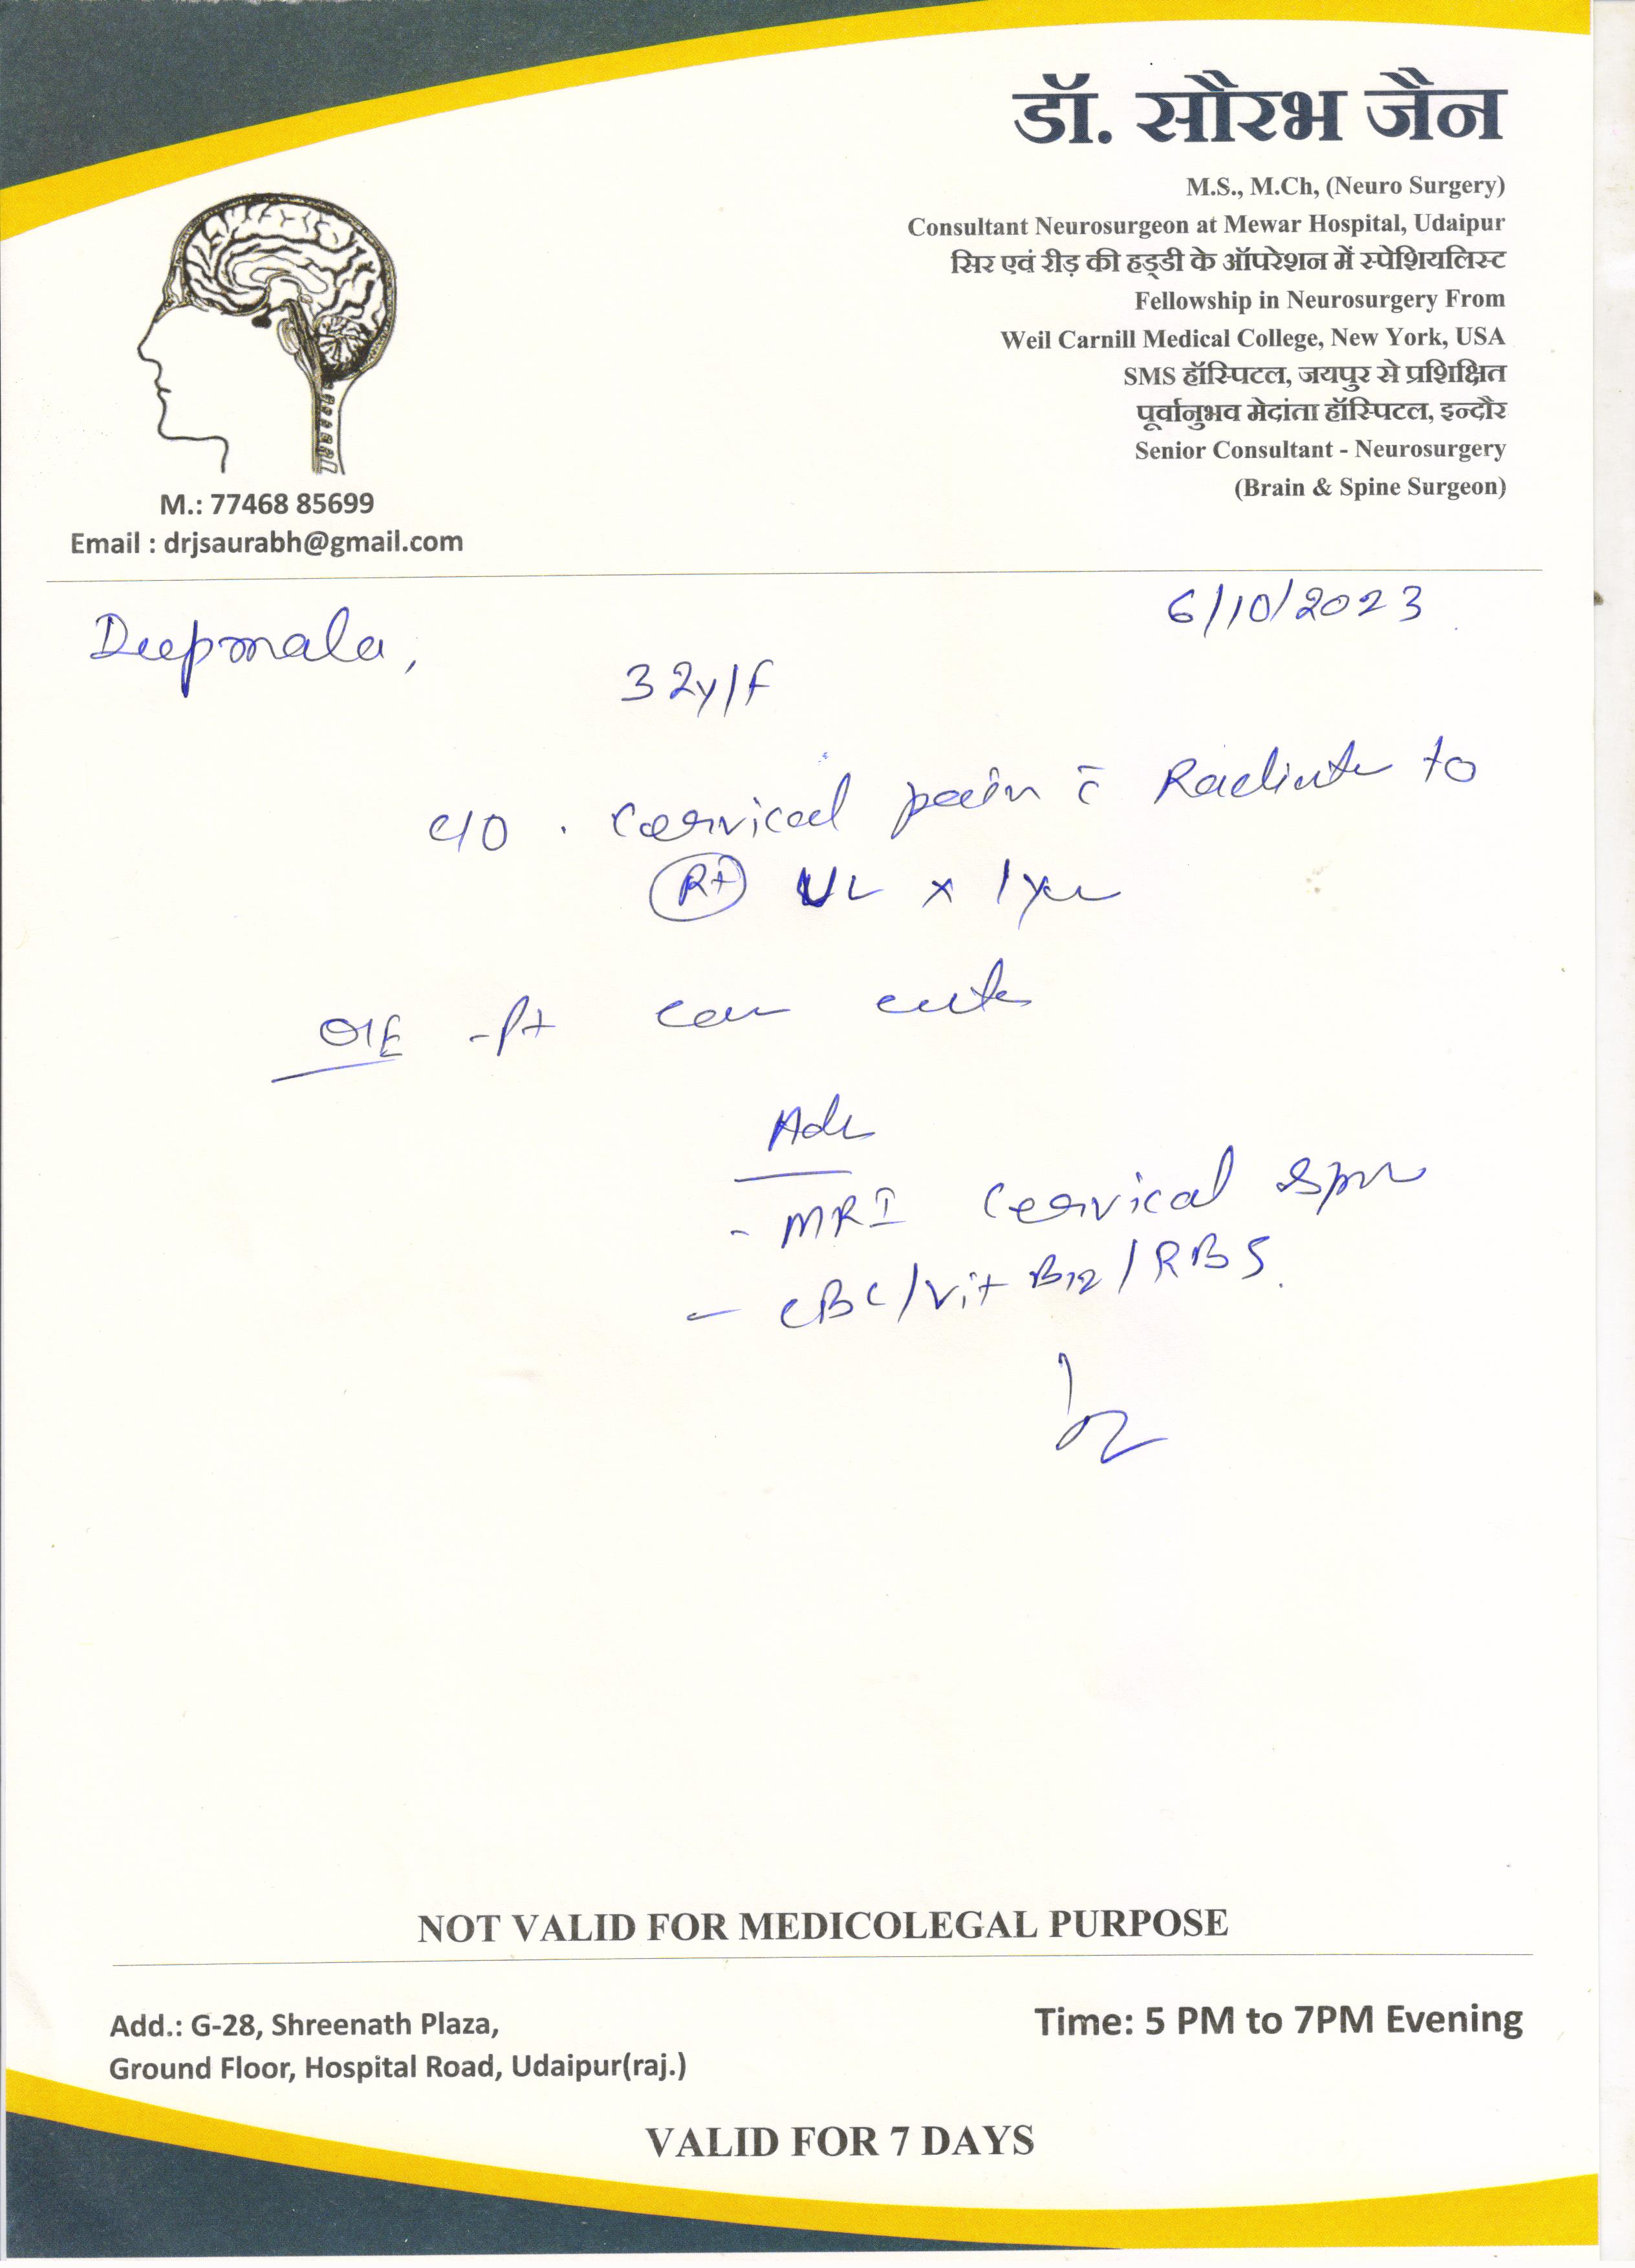 डॉ. सौरभ जैन
M.S., M.Ch, (Neuro Surgery)
Consultant Neurosurgeon at Mewar Hospital, Udaipur
सिर एवं रीड़ की हड्डी के ऑपरेशन में स्पेशियलिस्ट
Fellowship in Neurosurgery From
Weil Carnill Medical College, New York, USA
SMS हॉस्पिटल, जयपुर से प्रशिक्षित
पूर्वानुभव मेदांता हॉस्पिटल, इन्दौर
Senior Consultant - Neurosurgery
(Brain & Spine Surgeon)
M.: 77468 85699
Email : drjsaurabh@gmail.com
6/10/2023
Deepmala,
32y/f
c/o . Cervical pain c̄ Radiate to
Rt UL x 1 year
O/E - Pt
Adv
- MRI Cervical spine
- CBC/Vit B12/RBS.
NOT VALID FOR MEDICOLEGAL PURPOSE
Add.: G-28, Shreenath Plaza,
Ground Floor, Hospital Road, Udaipur(raj.)
Time: 5 PM to 7PM Evening
VALID FOR 7 DAYS